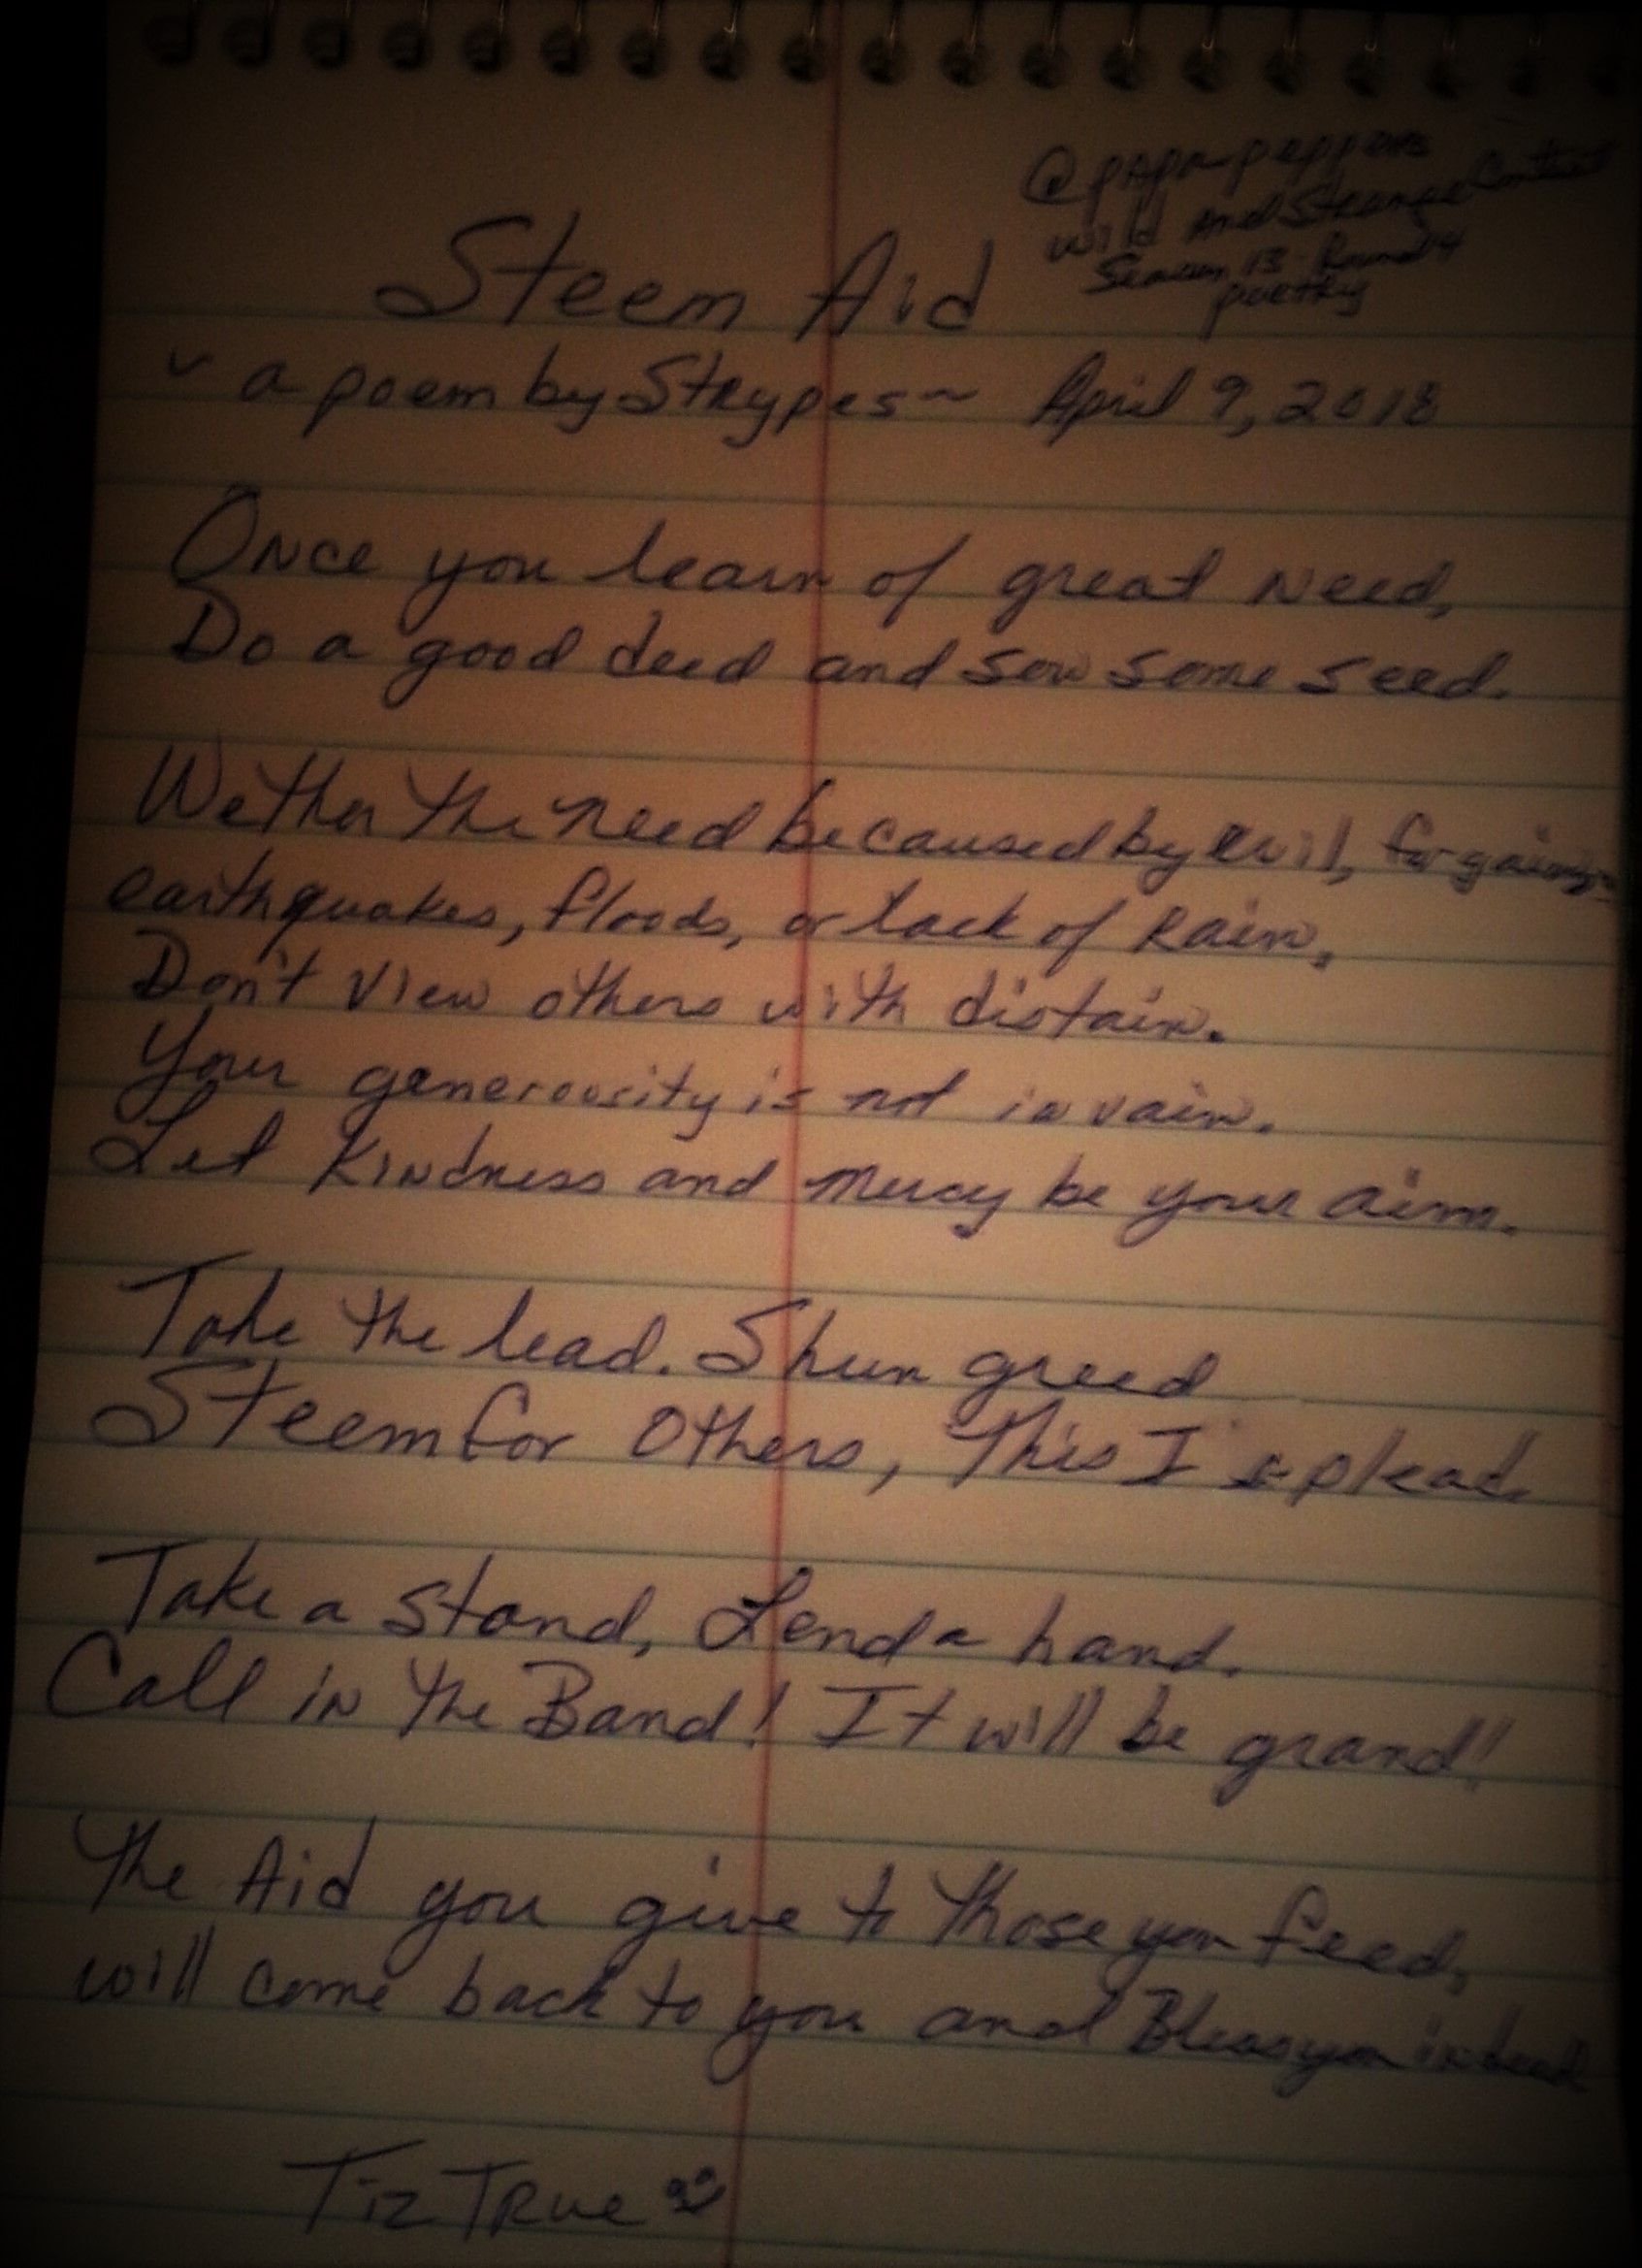 @papa-peppers
Wild And Strange Contest
Season 13 - Round 4
poetry
Steem Aid
~ a poem by Strypes ~ April 9, 2018
Once you learn of great need,
Do a good deed and sow some seed.
Wether the need be caused by evil, for gain,
earthquakes, floods, or lack of Rain,
Don't view others with distain.
Your generousity is not in vain.
Let Kindness and mercy be your aim.
Take the lead. Shun greed
Steem for others, This I plead.
Take a stand, Lend a hand.
Call in the Band! It will be grand!
The Aid you give to those you feed,
will come back to you and Bless you indeed
Tiz True